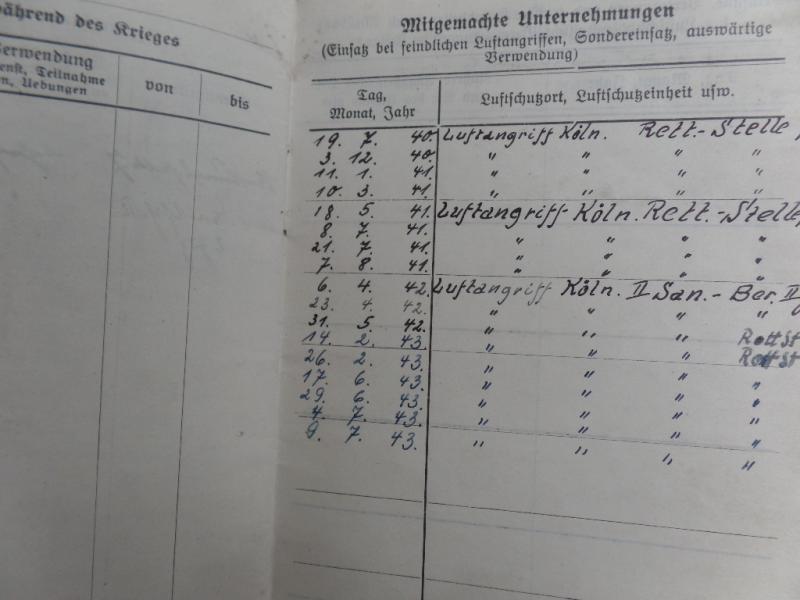 während des Krieges
Verwendung
Teilnahme
Uebungen
von
bis
Mitgemachte Unternehmungen
(Einsatz bei feindlichen Luftangriffen, Sondereinsatz, auswärtige
Verwendung)
Tag,
Monat, Jahr
Luftschutzort, Luftschutzeinheit usw.
19. 7. 40. Luftangriff Köln. Rett.-Stelle
3. 12. 40. " " " "
11. 1. 41. " " " "
10. 3. 41. " " " "
18. 5. 41. Luftangriff Köln. Rett.-Stelle
8. 7. 41. " " " "
21. 7. 41. " " " "
7. 8. 41. " " " "
6. 4. 42. Luftangriff Köln. II San.- Ber. II
23. 4. 42. " " " "
31. 5. 42. " " "
14. 2. 43. " " " Rett St
26. 2. 43. " " " Rett St
17. 6. 43. " " " "
29. 6. 43. " " " "
4. 7. 43. " " " "
9. 7. 43. " " " "